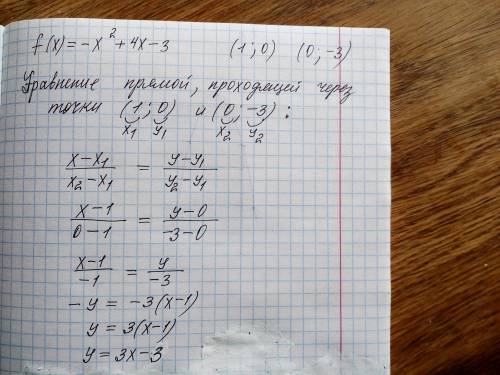 f(x) = -x² + 4x - 3 (1; 0) (0; -3)
Уравнение прямой, проходящей через
точки (1; 0) и (0; -3):
x₁ y₁ x₂ y₂
(x - x₁)/(x₂ - x₁) = (y - y₁)/(y₂ - y₁)
(x - 1)/(0 - 1) = (y - 0)/(-3 - 0)
(x - 1)/(-1) = y/(-3)
-y = -3(x-1)
y = 3(x-1)
y = 3x - 3